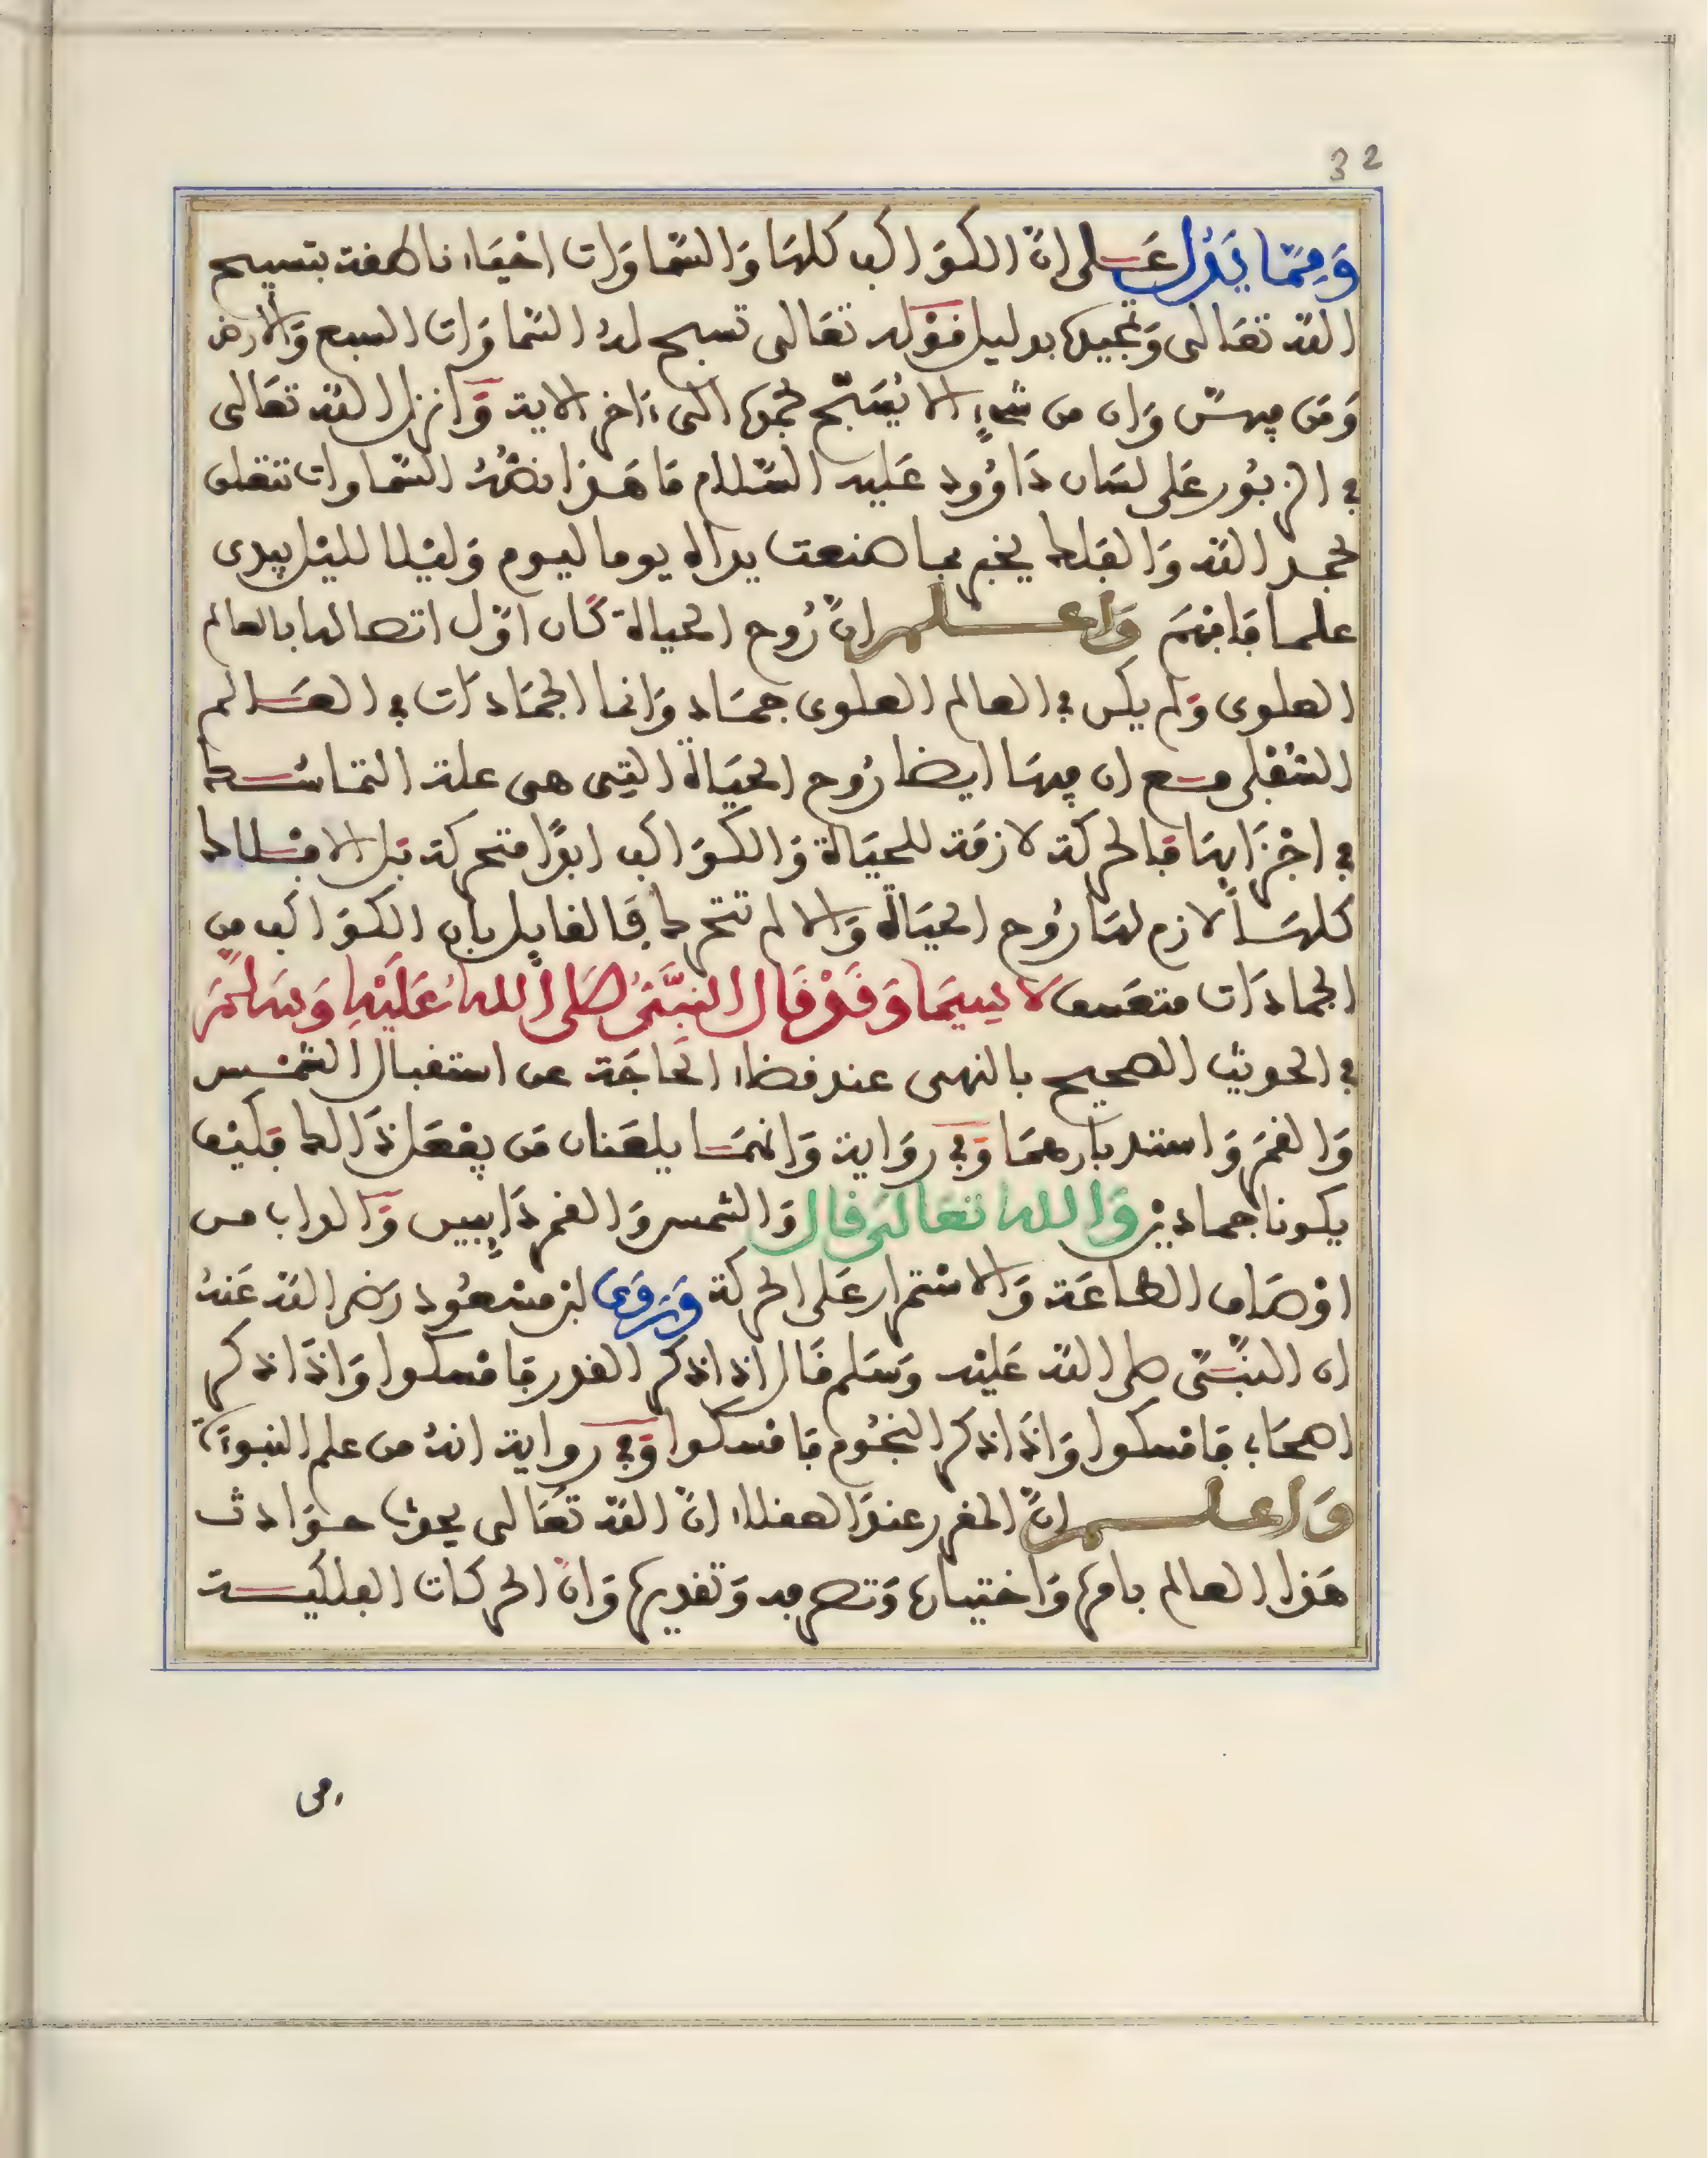 32
وَمِمَّا يَدُل عَلى انّ الكوَاكب كلهَا وَالسّمَاوَات احْيَاء ناطقة بتسبيح
الله تعَالى وَتمجيده بدليل قوْله تعَالى تسبح لهُ السّمَاوَات السبع وَالارض
وَمَن فيهنّ وَان من شىءٍ الا يُسَبّح بحمده الى ءاخر الاية وَانزل الله تعَالى
في الزبُور عَلى لسَان دَاوُود عَليه السّلام مَا هَذا نصّهُ السّمَاوات تنطق
بحمد الله وَالفَلك يخبر بما صنعت يداه يوما ليوم وَليْلا لليْل يبدى
علما فَافهَم وَاعلم انّ رُوح الحياة كَان اوّل اتصالها بالعالم
العلوى وَلم يكن في العالم العلوى جمَاد وَانما الجمَادَات في العَالم
السّفْلى مع ان فيهَا ايضا رُوح الحيَاة التِى هى علة التمَاسُك
في اجْزَايهَا فَالحركة لازمَة للحيَاة وَالكوَاكب ابدًا متحركة بَل الافْلاك
كلهَا لازم لهَا رُوح الحيَاة وَالا لم تتحرك فَالقايِل بان الكوَاكب من
الجمادَات متعَسف لا سِيَمَا وَقَدْ قَال النبَّيُ صَلى اللهُ عَلَيْهِ وَسَلمَ
في الحديث الصحيح بالنهى عند قضاء الحَاجَة عن استقبال الشمْس
وَالقمَر وَاستدبارهمَا وَفي روَاية وَانهمَا يلعَنان مَن يفعَل ذَالك فَكيْف
يكونا جمَاديْن وَالله تعَالَى قال وَالشمس وَالقمر دَايِبين وَالداب من
اوْصَاف الطاعَة وَالاسْتمرار عَلى الحركة وَرَوَى ابن مسْعُود رَضى الله عَنهُ
ان النبّي صلى الله عَليْه وَسَلم قَال اذا ذكر القدر فَامْسكوا وَاذَا ذكر
اصحَابى فَامْسكوا وَاذَا ذكر النجُوم فَامْسكوا وَفي رواية انهُ من علم النبوءَة
وَاعلم انّ المقرر عندَ العقلاء انّ الله تعَالى يحدث حوَادث
هَذا العالم بامره وَاختيَاره وَتصريفه وَتقديره وَانّ الحركات الفلكية